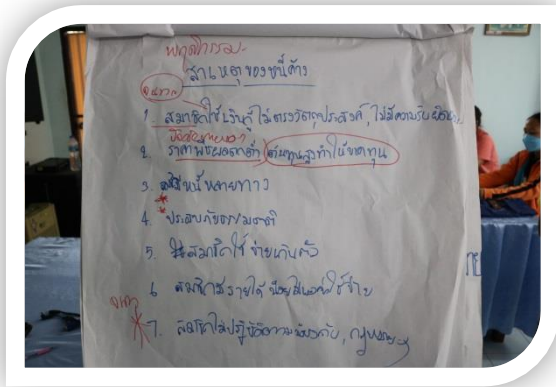 พฤติกรรม-
สาเหตุของหนี้ค้าง
1. สมาชิกใช้เงินกู้ไม่ตรงวัตถุประสงค์, ไม่มีความรับผิดชอบ
2. ราคาพืชผลตกต่ำ ต้นทุนสูงทำให้ขาดทุน
3. มีหนี้หลายทาง
4. ประสบภัยธรรมชาติ
5. สมาชิกใช้จ่ายเกินตัว
6 สมาชิกมีรายได้น้อยไม่พอค่าใช้จ่าย
7. สมาชิกไม่ปฏิบัติตามข้อบังคับ, กฎหมาย